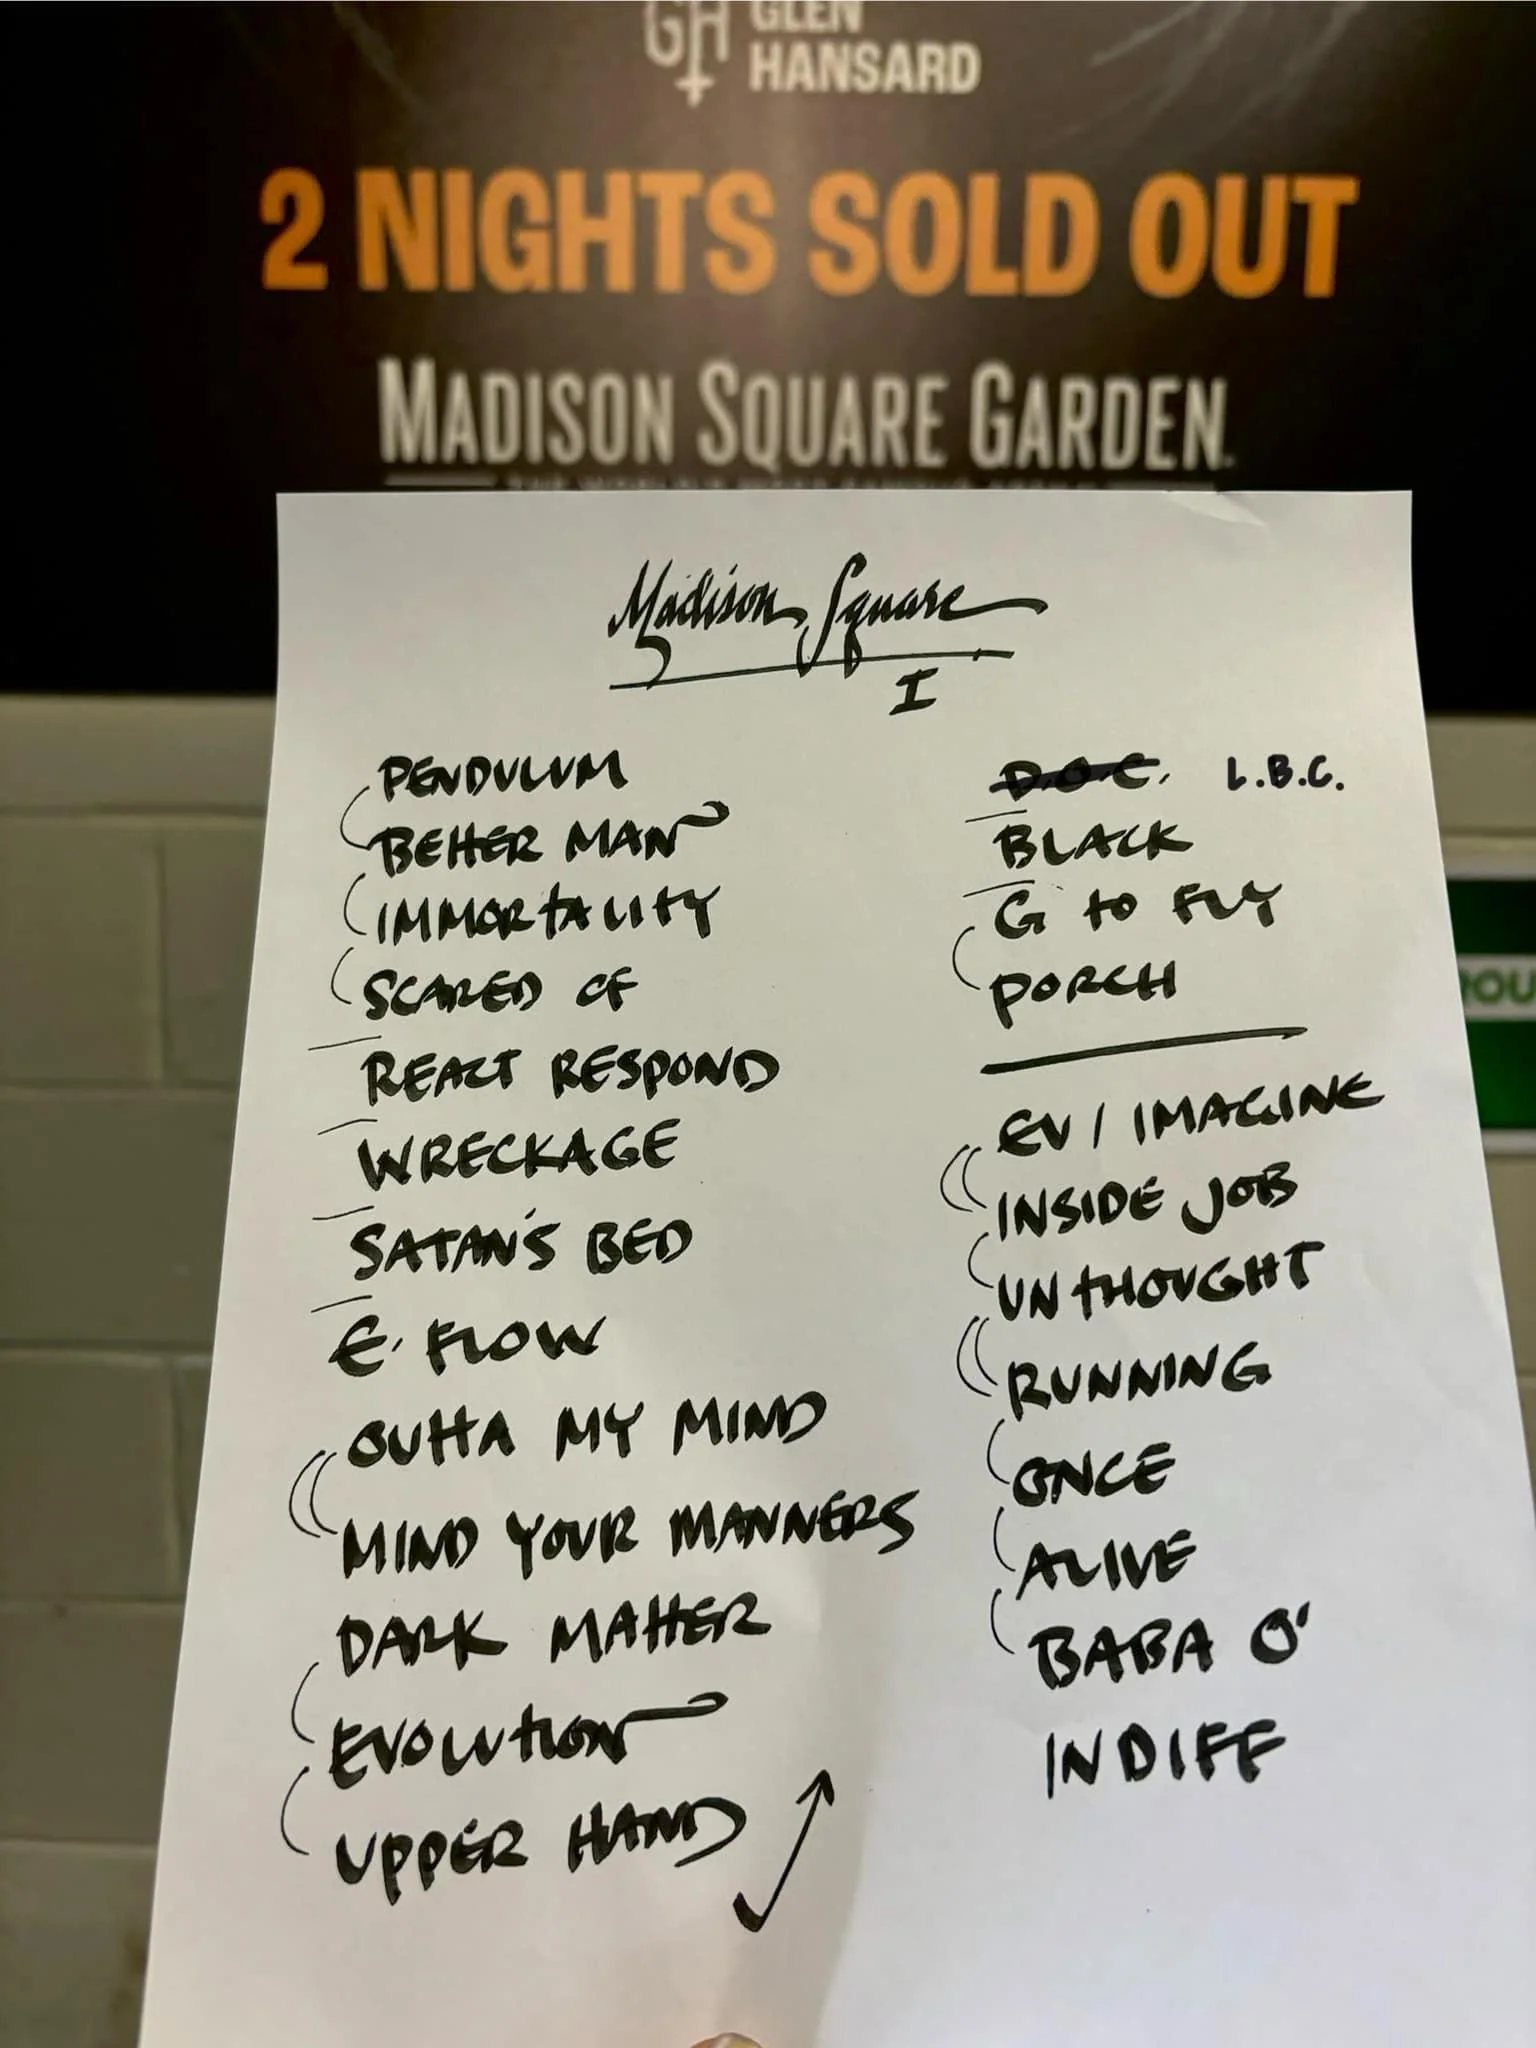 GH GLEN
HANSARD
2 NIGHTS SOLD OUT
MADISON SQUARE GARDEN
Madison Square
I
PENDULUM
BETTER MAN
IMMORTALITY
SCARED OF
REACT RESPOND
WRECKAGE
SATAN'S BED
E. FLOW
OUTTA MY MIND
MIND YOUR MANNERS
DARK MATTER
EVOLUTION
UPPER HAND
D.O.C. L.B.C.
BLACK
G TO FLY
PORCH
EV / IMAGINE
INSIDE JOB
UNTHOUGHT
RUNNING
ONCE
ALIVE
BABA O'
INDIFF
ROU